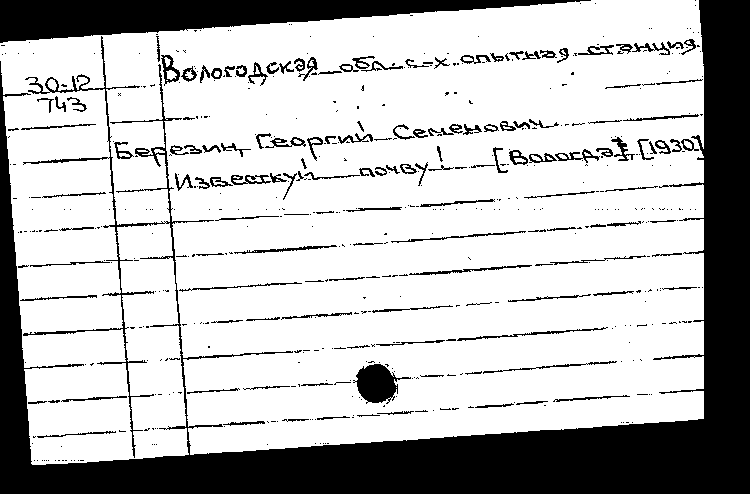 30-12
743
Вологодская обл. с-х. опытная станция.
Березин, Георгий Семенович.
Известкуй почву! [Вологда], [1930]